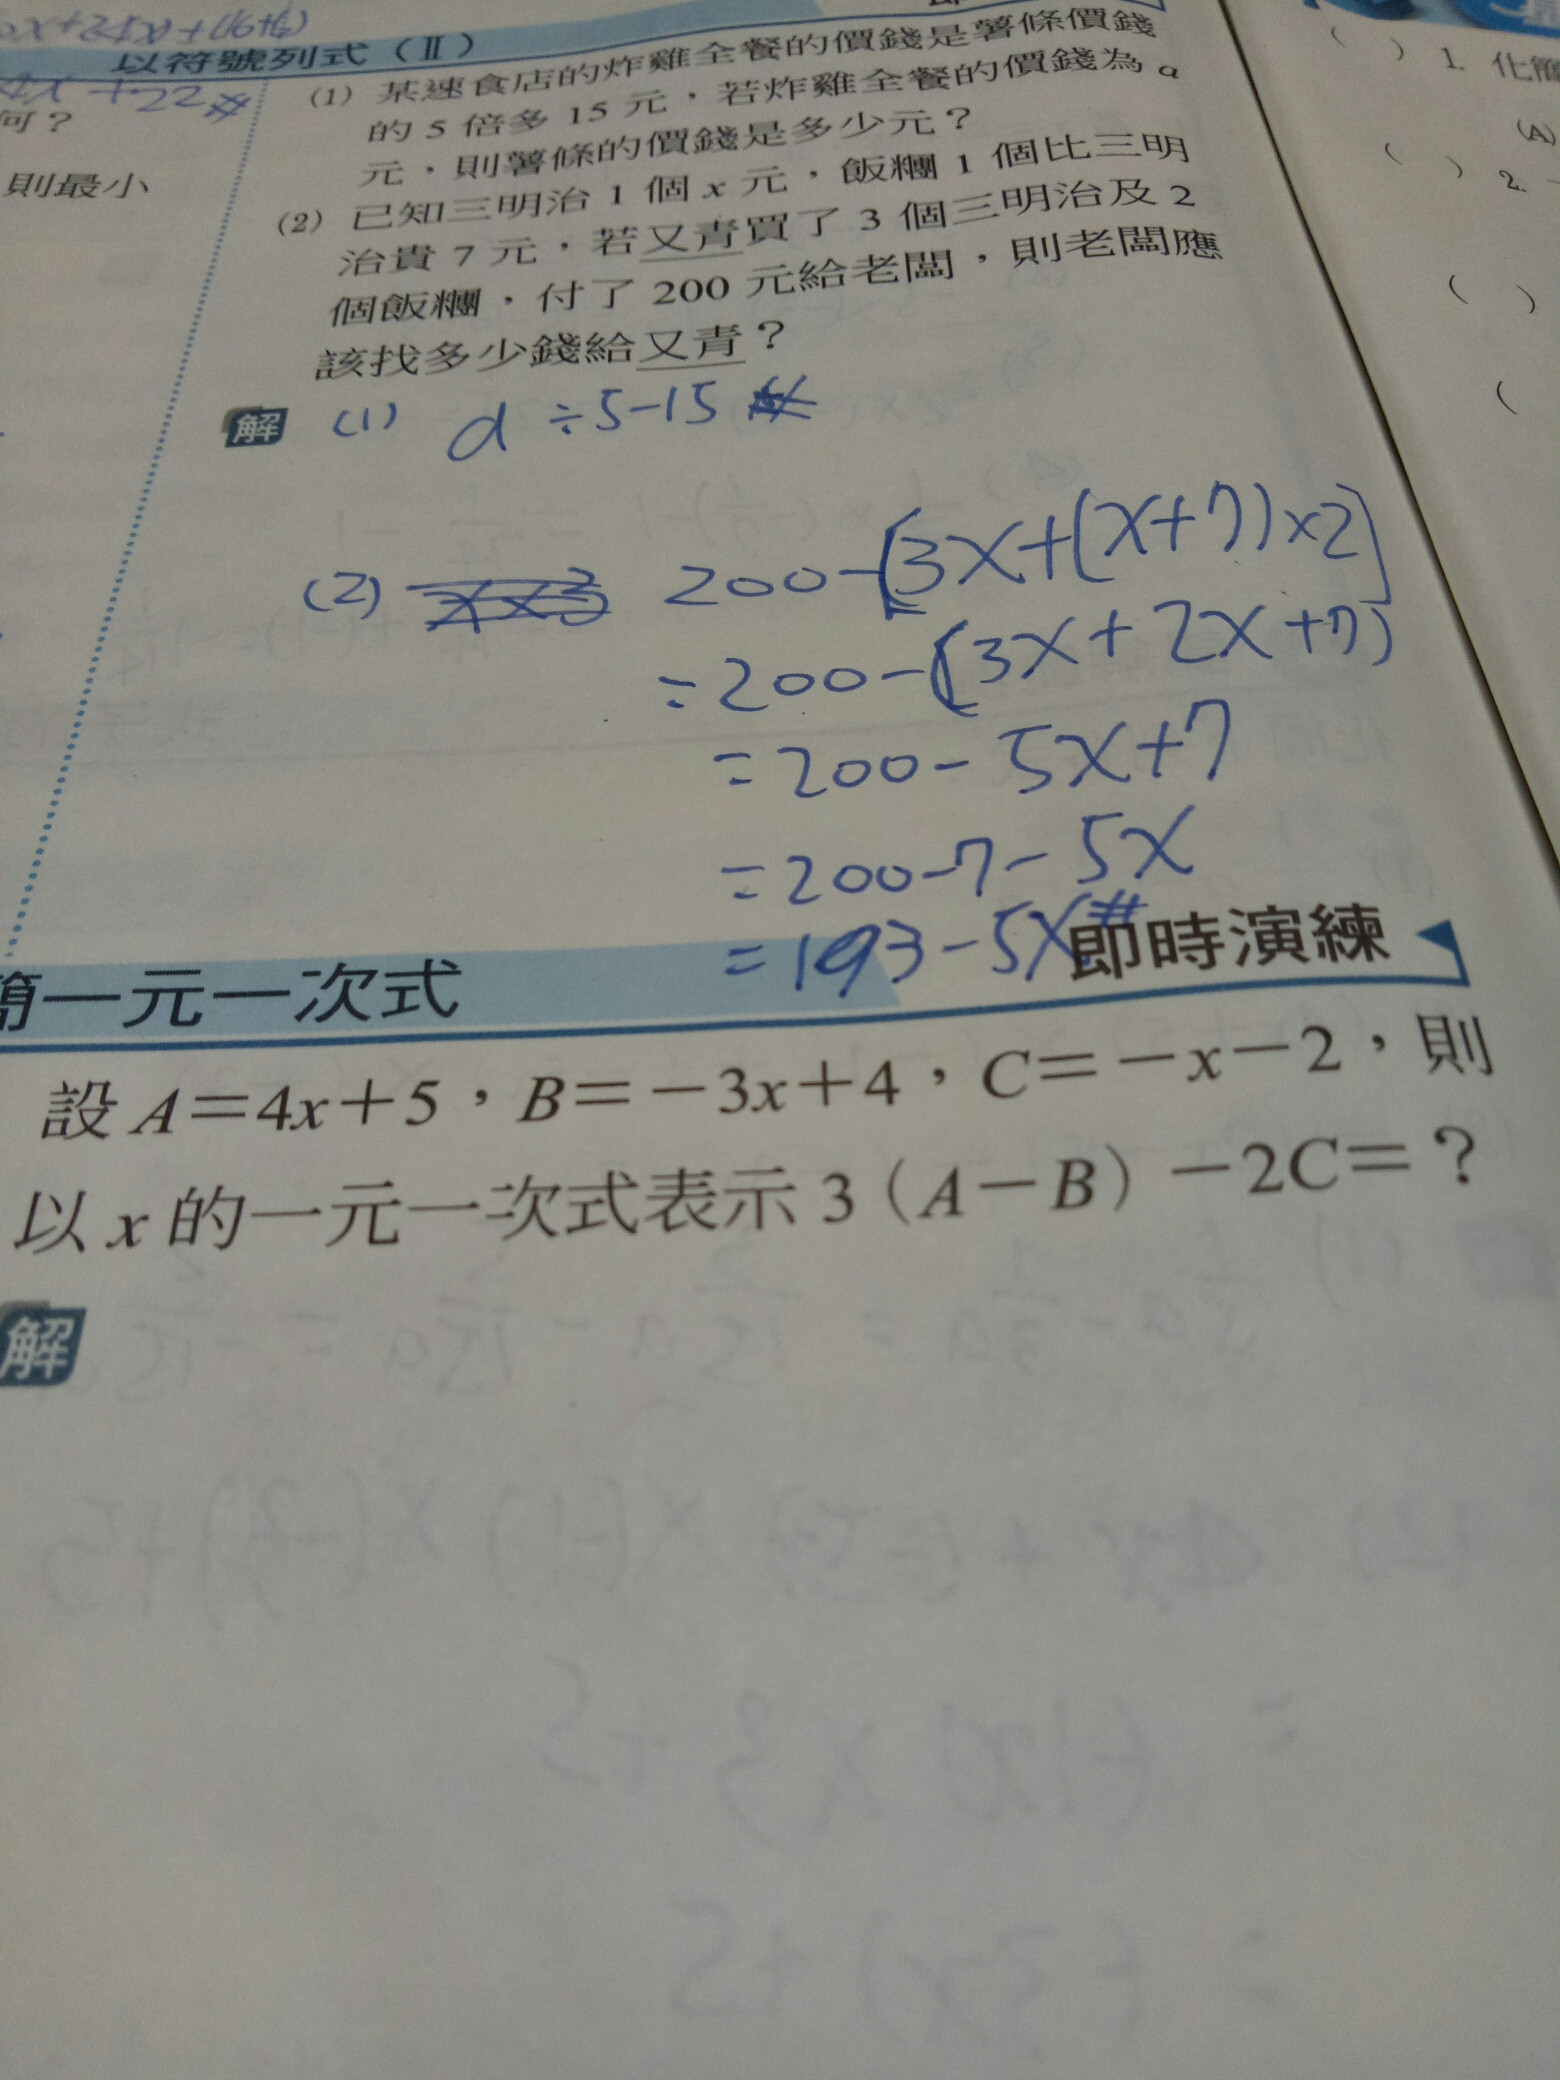 以符號列式（Ⅱ）
4x+22#
何？
則最小
(1) 某速食店的炸雞全餐的價錢是薯條價錢
的 5 倍多 15 元，若炸雞全餐的價錢為 a
元，則薯條的價錢是多少元？
(2) 已知三明治 1 個 x 元，飯糰 1 個比三明
治貴 7 元，若又青買了 3 個三明治及 2
個飯糰，付了 200 元給老闆，則老闆應
該找多少錢給又青？
解 (1) a÷5-15
(2) 200-[3x+(x+7)×2]
=200-(3x+2x+7)
=200-5x+7
=200-7-5x
=193-5x#
簡一元一次式 即時演練
設 A=4x+5，B=-3x+4，C=-x-2，則
以 x 的一元一次式表示 3（A-B）-2C=？
解
( ) 1. 化簡
(A)
( ) 2.
( )
(